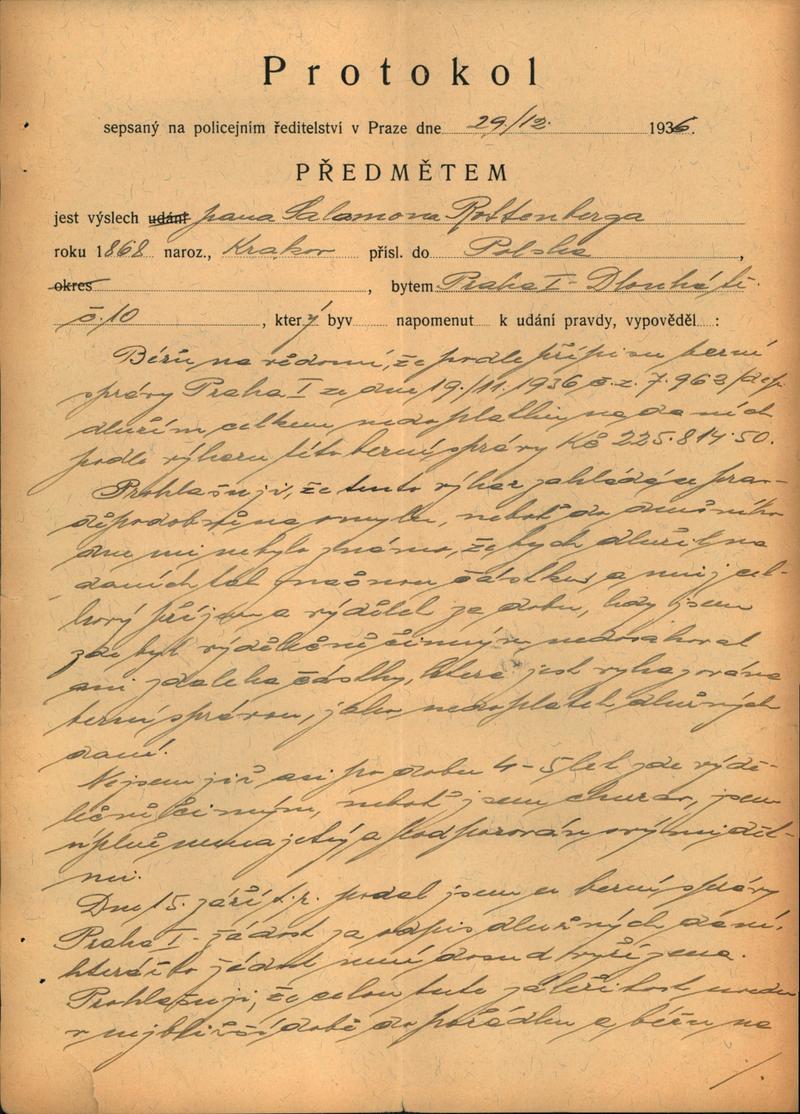 Protokol
sepsaný na policejním ředitelství v Praze dne 29./12. 1936.
PŘEDMĚTEM
jest výslech udání pana Salamona Rottenberga
roku 1868 naroz., Krakov přísl. do Polska,
okres , bytem Praha I - Dlouhá tř.
č. 10 , který byv napomenut k udání pravdy, vypověděl :
Béřu na vědomí, že podle přípisu berní
správy Praha I ze dne 19./11. 1936 č.z. 7.963/dep
dlužím celkem nedoplatku na daních
podle výměru této berní správy Kč 225.814.50.
Prohlašuji, že tento výměr zakládá se prav-
děpodobně na omylu, neboť do dnešního
dne mi nebylo známo, že bych dlužil na
daních tak značnou částku, a můj cel-
kový příjem a výdělek za dobu, kdy jsem
zde byl výdělečně činným nedosahoval
ani zdaleka částky, která jest vykazována
berní správou, jako nedoplatek dlužných
daní.
Nejsem již asi po dobu 4-5 let zde výdě-
lečně činným, neboť jsem churav, jsem
úplně nemajetný a podporován svými dět-
mi.
Dne 15. září t.r. podal jsem u berní správy
Praha I - žádost za odpis dlužných daní,
kterážto žádost není dosud vyřízena.
Prohlašuji, že celou tuto záležitost uvedu
v nejbližší době do pořádku a béřu na